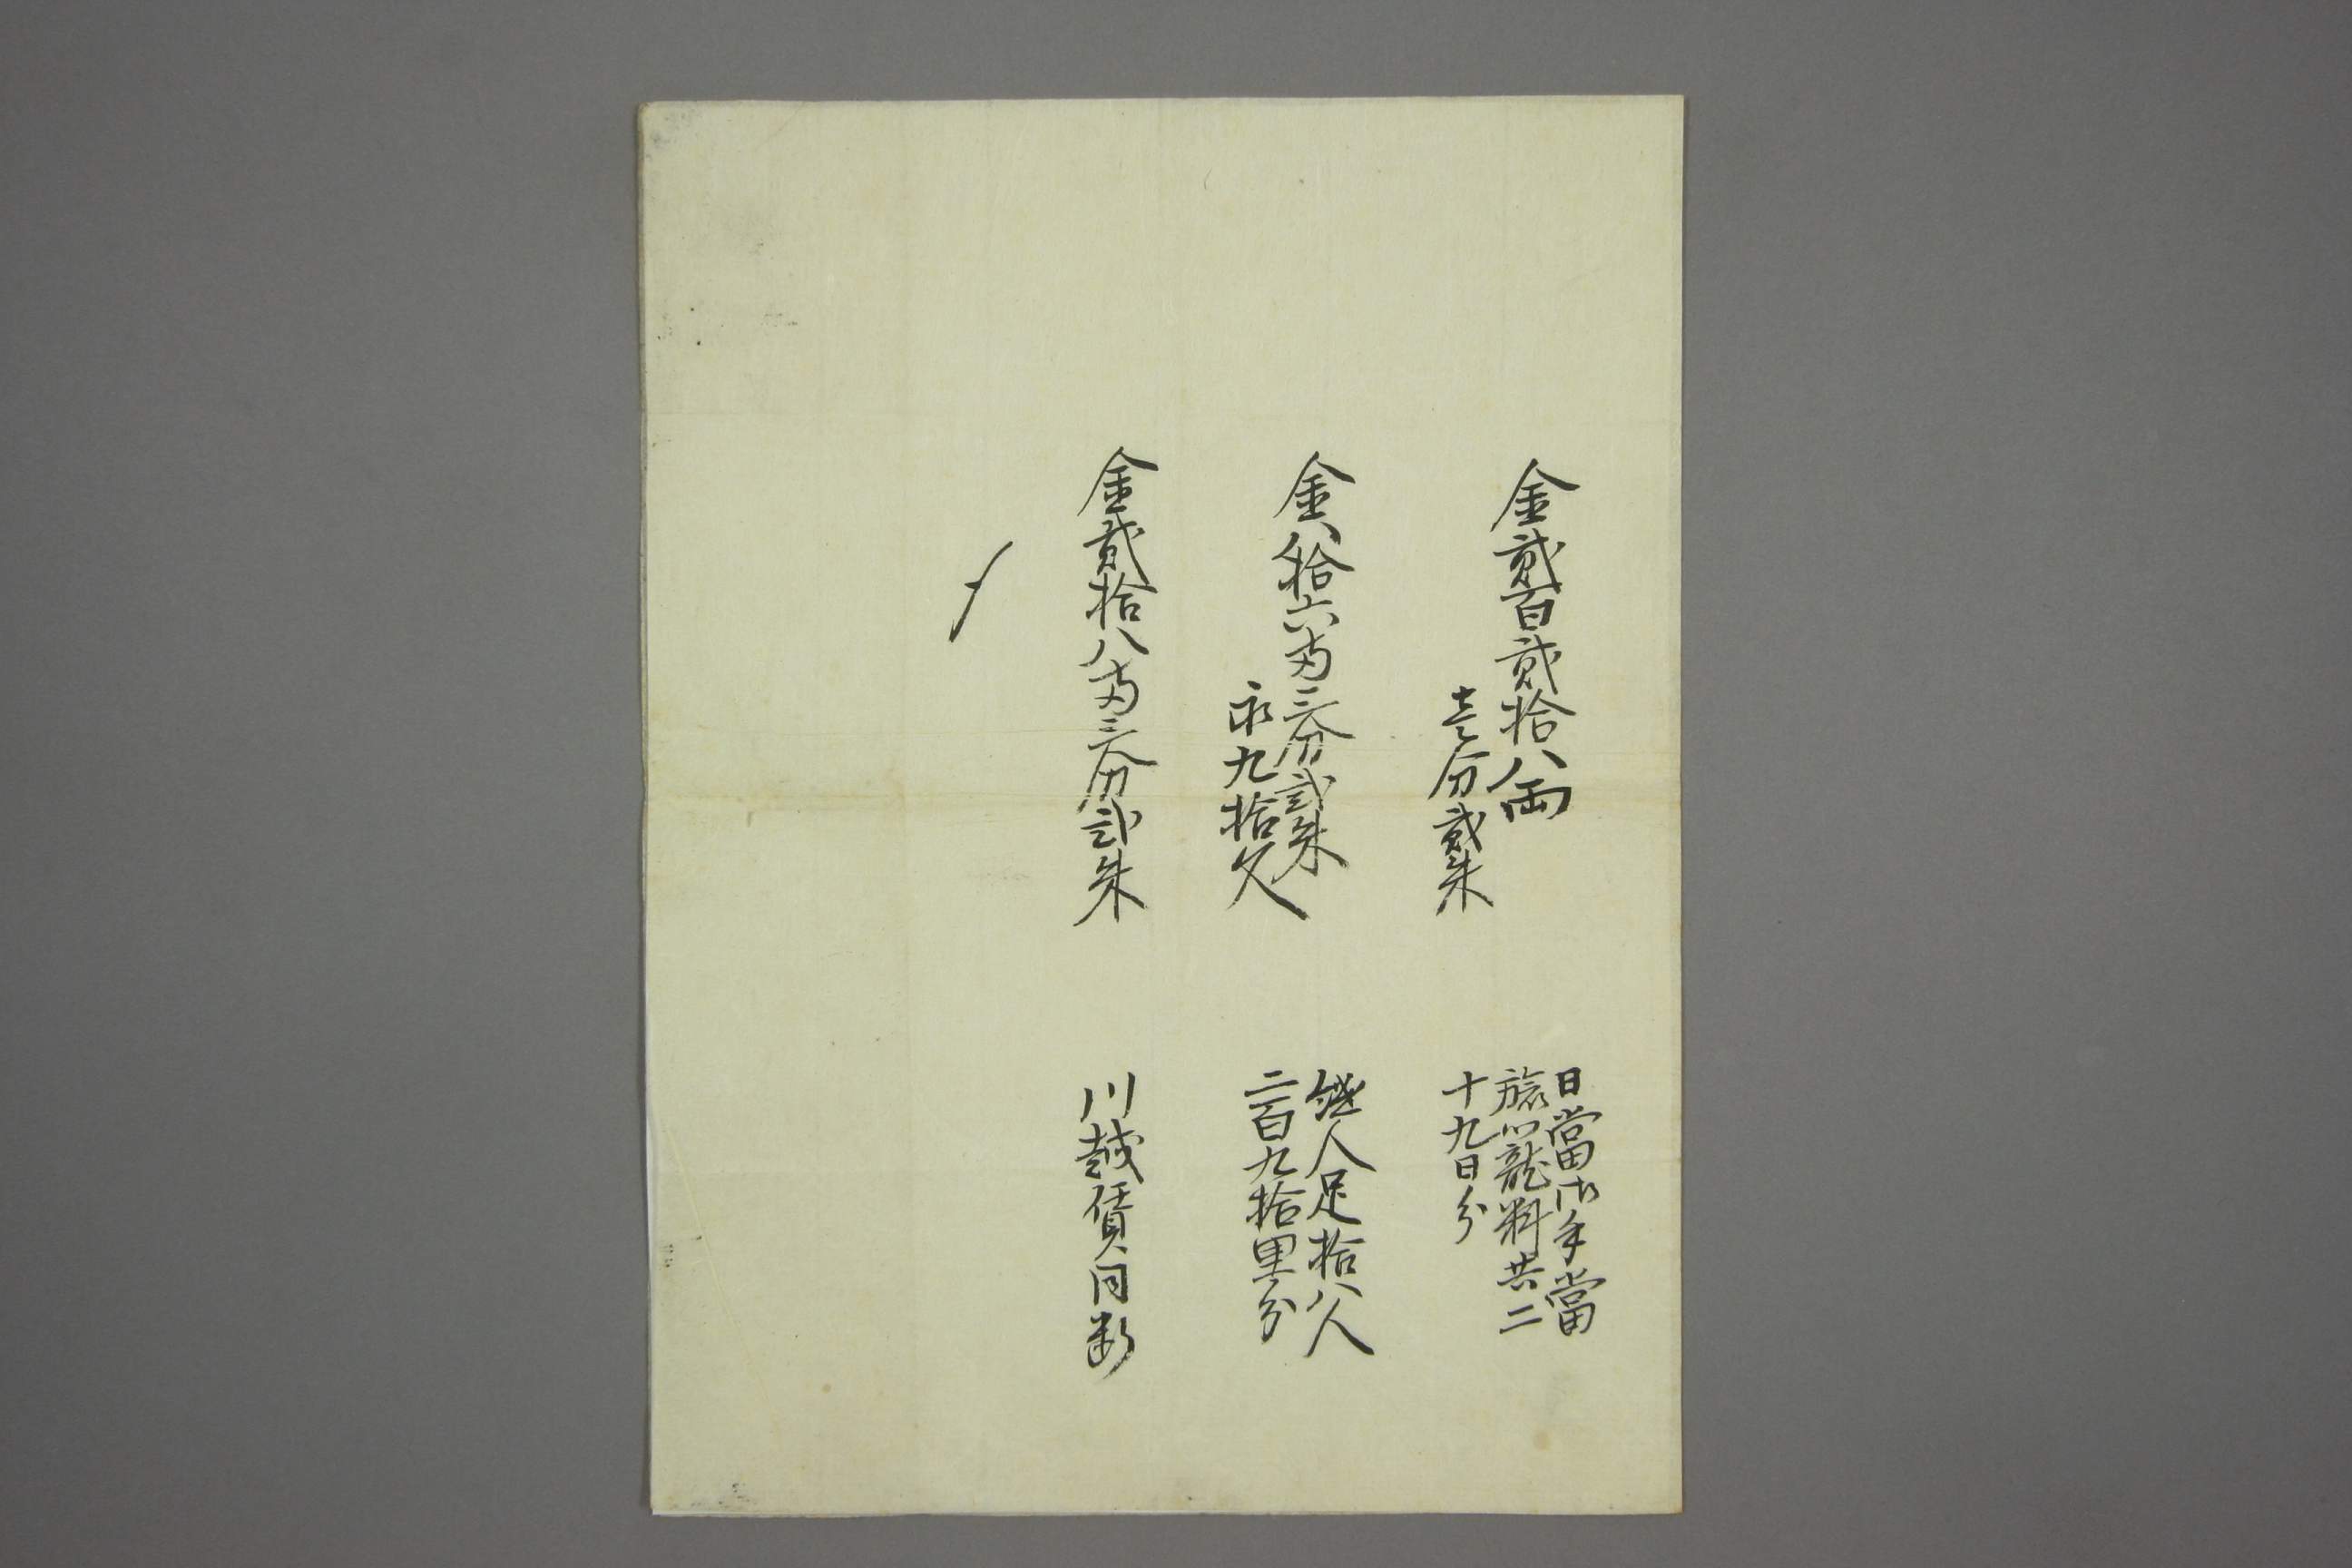 金貳百貳拾八両
壱分貳朱
日當御手當
旅籠料共二
十九日分
金八拾六両三分貳朱
永九拾文
継人足拾八人
二百九拾里分
金貳拾八両三分貳朱
川越賃同断
〆